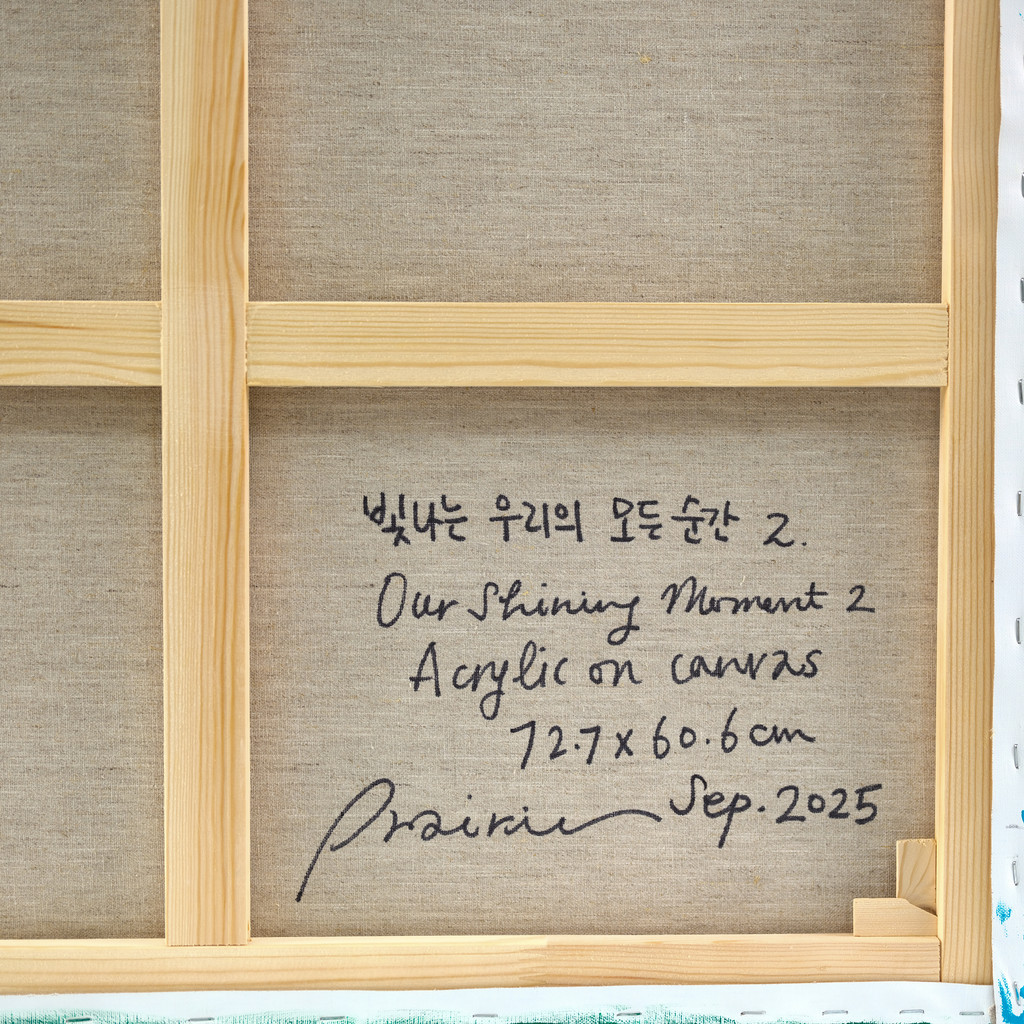 빛나는 우리의 모든 순간 2.
Our Shining Moment 2
Acrylic on canvas
72.7 x 60.6 cm
Prairie Sep. 2025